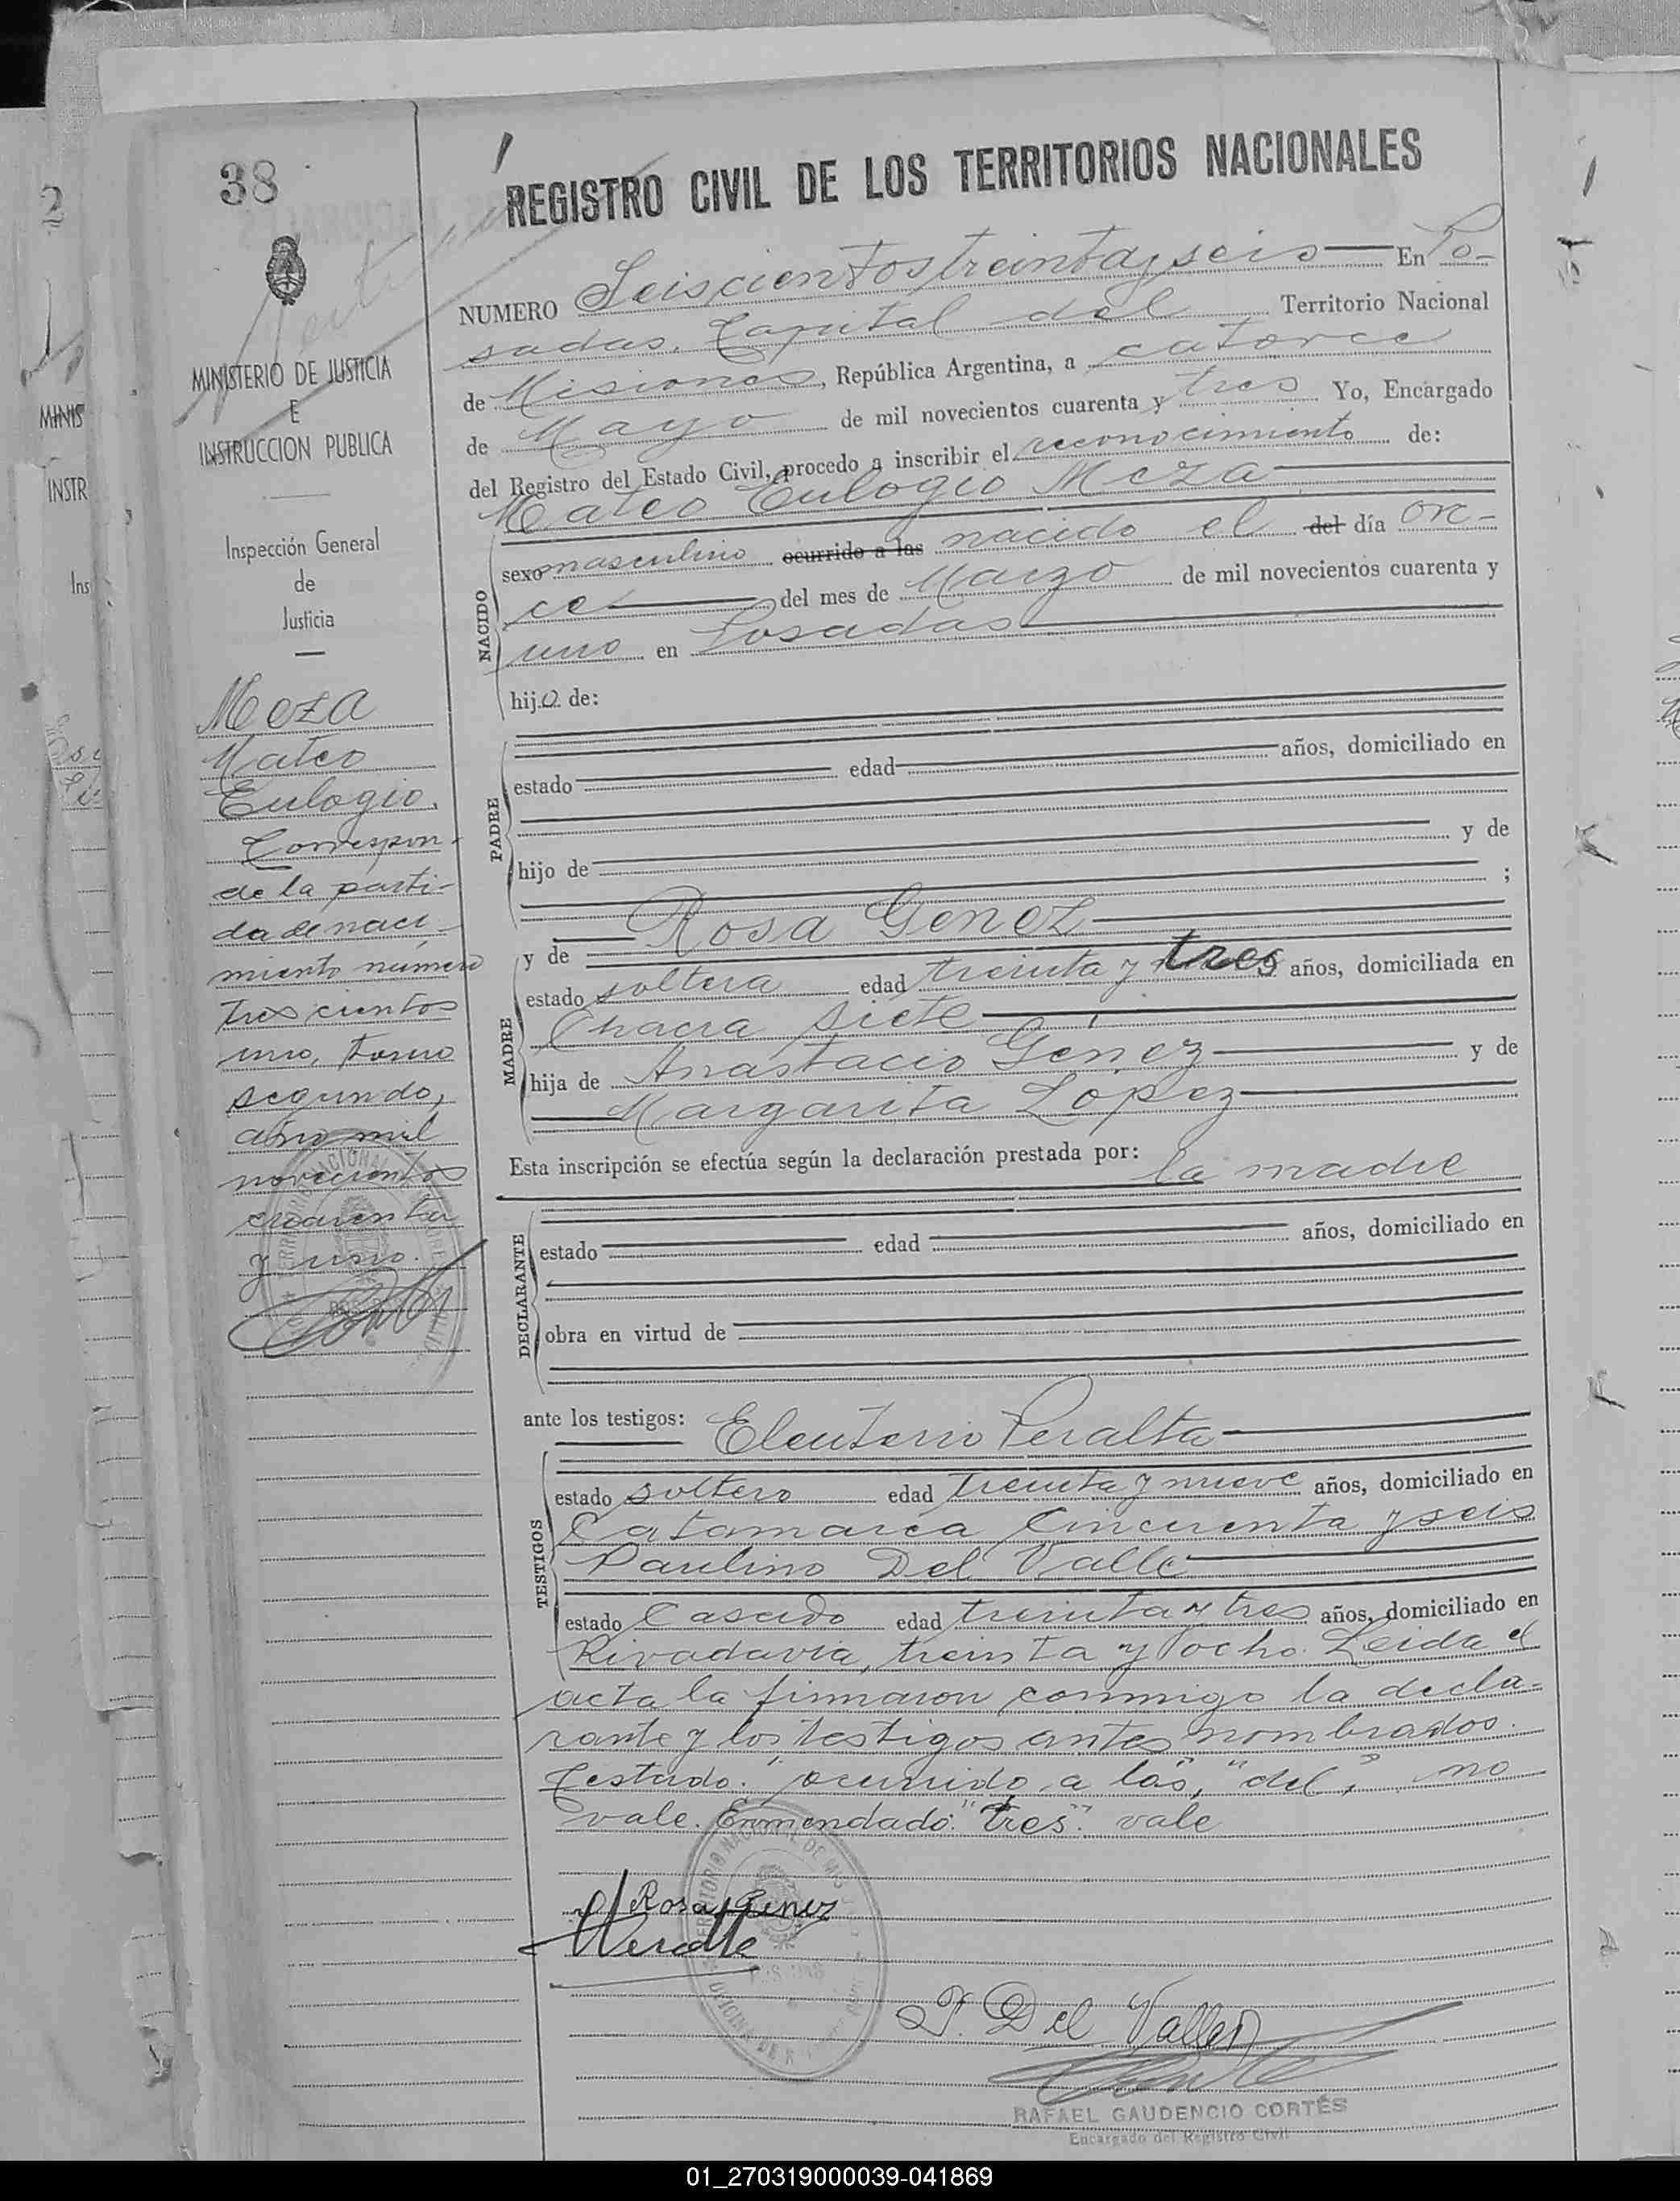 38
REGISTRO CIVIL DE LOS TERRITORIOS NACIONALES
NUMERO Seiscientos treinta y seis En Po-
sadas, Capital del Territorio Nacional
de Misiones, República Argentina, a catorce
de Mayo de mil novecientos cuarenta y tres Yo, Encargado
del Registro del Estado Civil, procedo a inscribir el reconocimiento de:
Mateo Eulogio Meza
NACIDO
sexo masculino ocurrido a las nacido el del día on-
ce del mes de Marzo de mil novecientos cuarenta y
uno en Posadas
hijo de:
PADRE
estado edad años, domiciliado en
hijo de y de
;
y de Rosa Genez
MADRE
estado soltera edad treinta y tres años, domiciliada en
Chacra siete
hija de Anastacio Genez y de
Margarita Lopez
Esta inscripción se efectúa según la declaración prestada por: la madre
DECLARANTE
estado edad años, domiciliado en
obra en virtud de
ante los testigos: Eleuterio Peralta
TESTIGOS
estado soltero edad treinta y nueve años, domiciliado en
Catamarca Cincuenta y seis
Paulino Del Valle
estado Casado edad treinta y tres años, domiciliado en
Rivadavia, treinta y ocho. Leida el
acta la firmaron conmigo la decla-
rante y los testigos antes nombrados.
Testado: "ocurrido a las", "del", no
vale. Enmendado: "tres" vale
Rosa Genez
P. Del Valle
RAFAEL GAUDENCIO CORTÉS
Encargado del Registro Civil
MINISTERIO DE JUSTICIA
E
INSTRUCCION PUBLICA
Inspección General
de
Justicia
Meza
Mateo
Eulogio.
Correspon-
de la parti-
da de naci-
miento número
trescientos
uno, tomo
segundo,
año mil
novecientos
cuarenta
y uno.
2
MINIS
INSTR
Ins
01_270319000039-041869